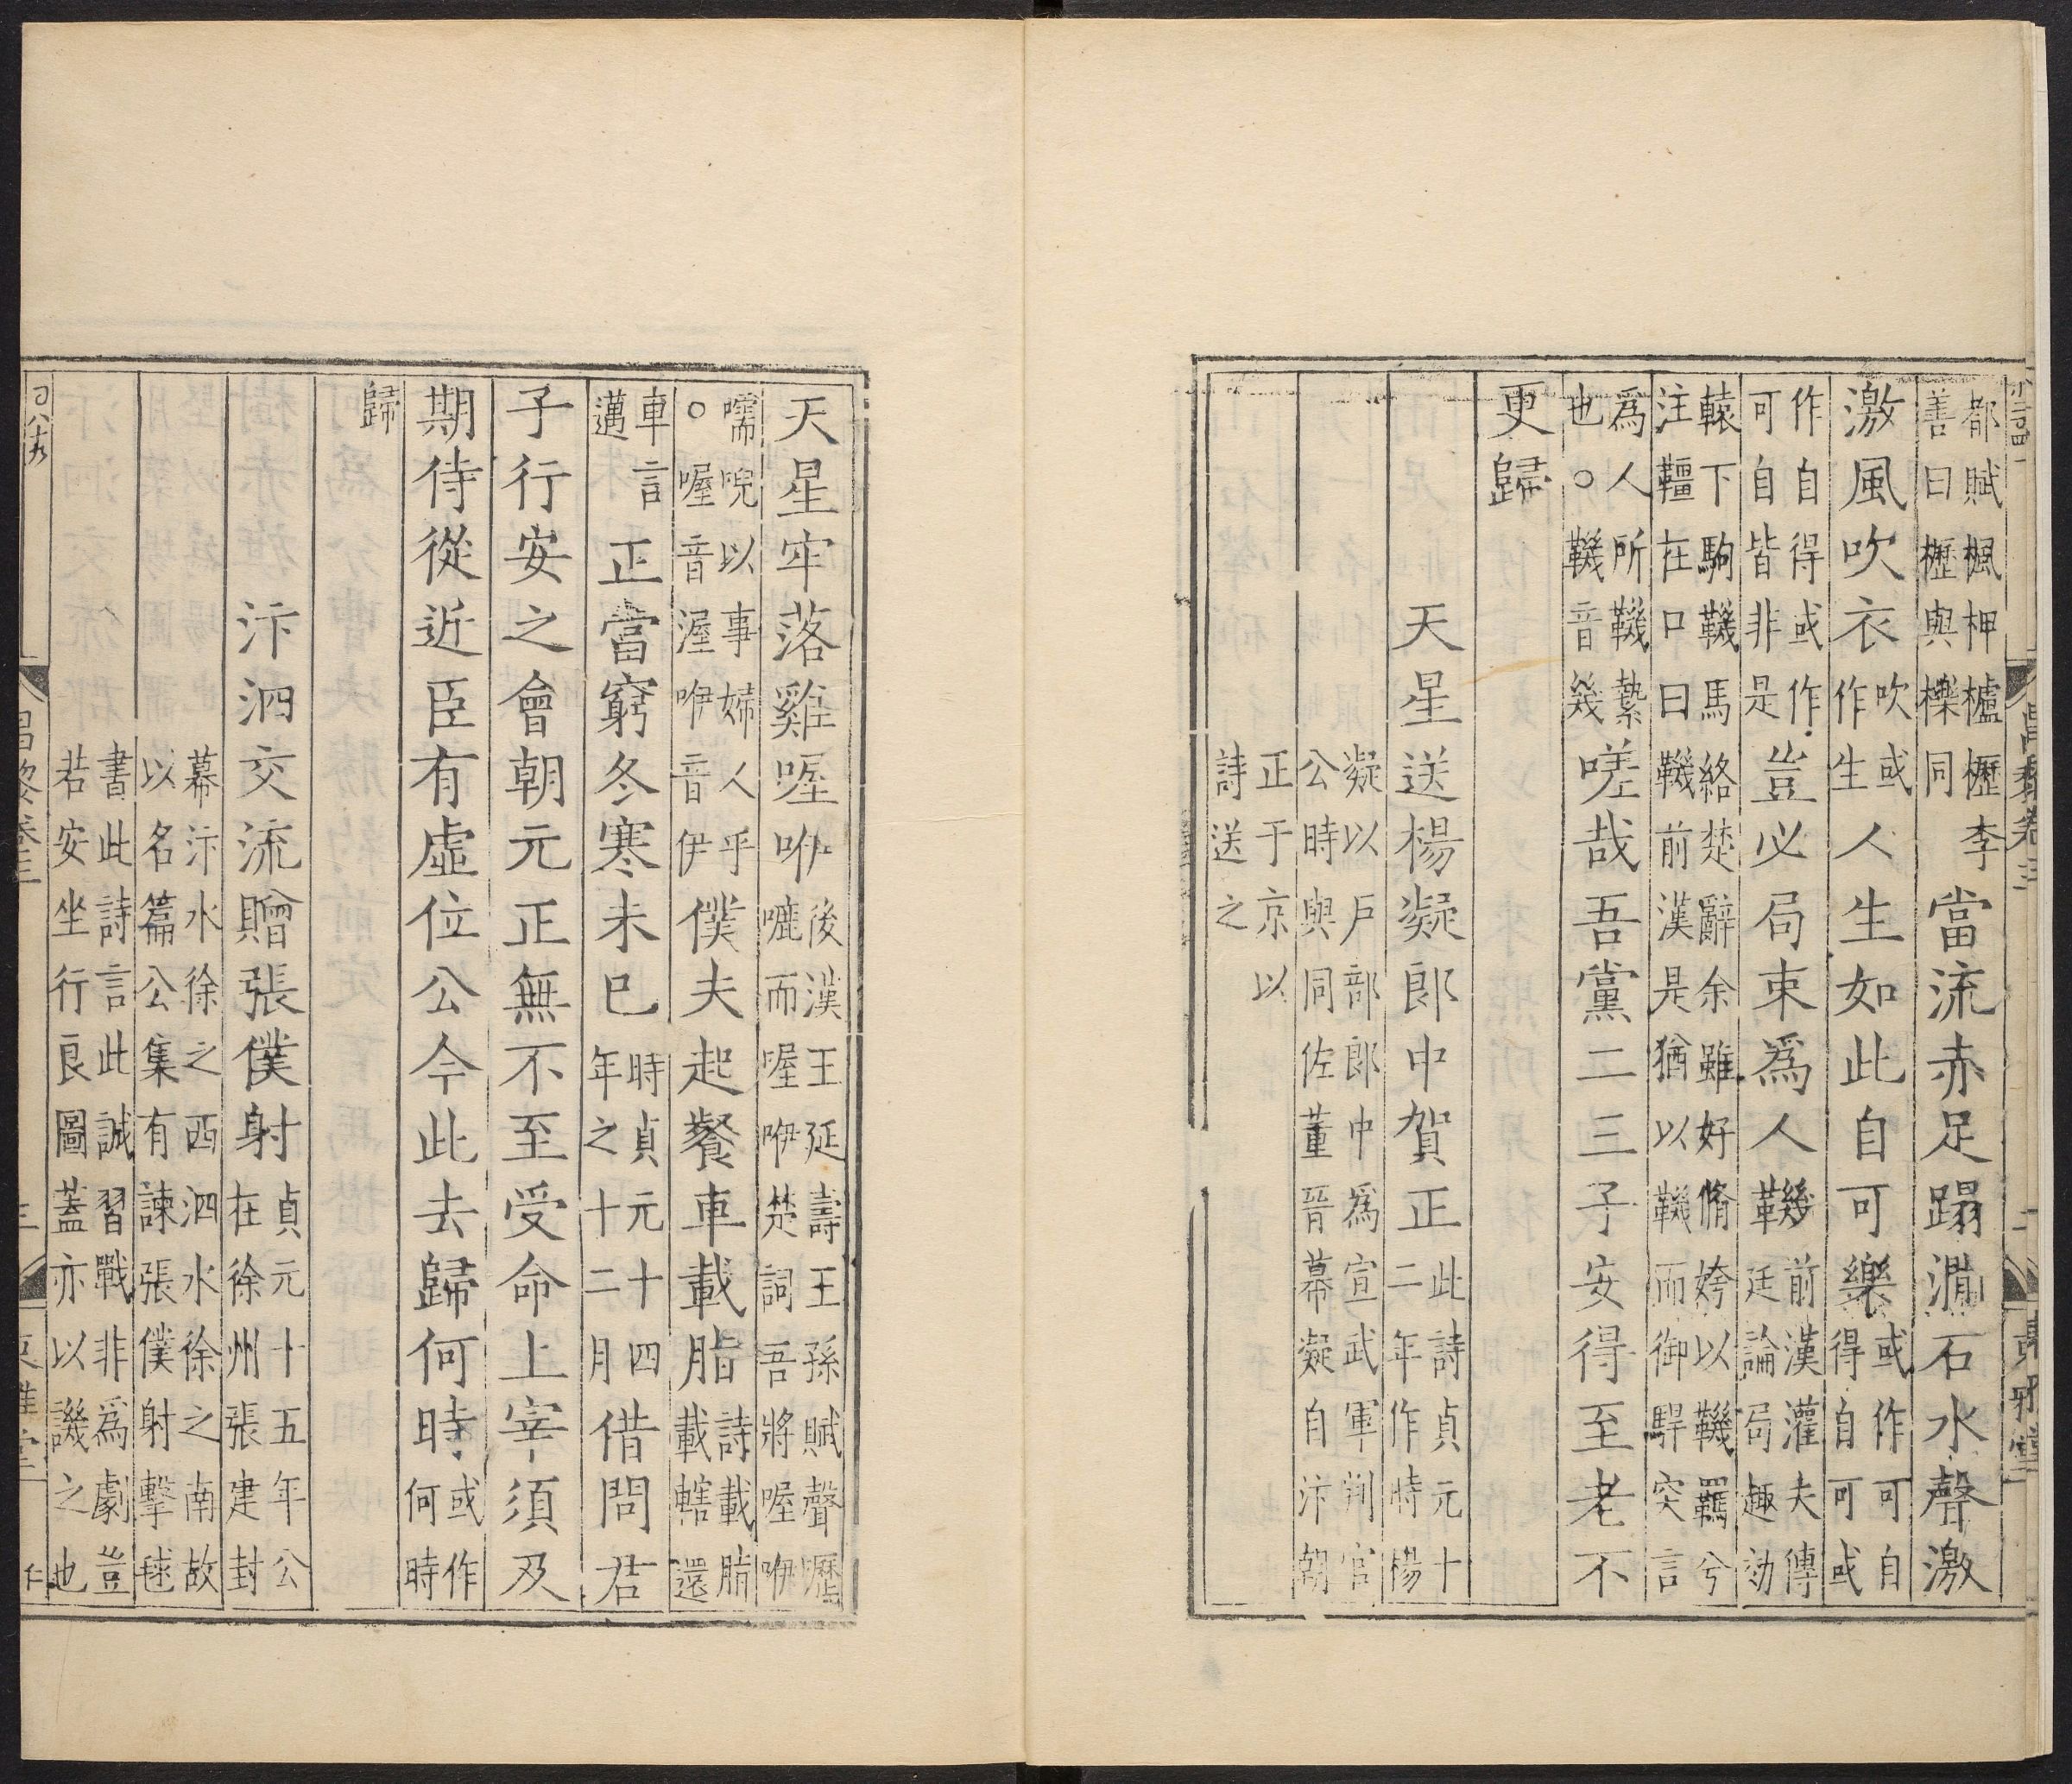 昌黎卷三
二
東雅堂
都賦楓柙櫨櫪李善曰櫪與櫟同當流赤足蹋澗石水聲激
激風吹衣吹或作生人生如此自可樂或作可自得自可或
作自得或作可自皆非是豈必局束爲人鞿前漢灌夫傳廷論局趣効
轅下駒鞿馬絡楚辭余雖好脩姱以鞿羈兮注韁在口曰鞿前漢是猶以鞿而御駻突言
爲人所鞿縶也○鞿音幾嗟哉吾黨二三子安得至老不
更歸
天星送楊凝郎中賀正此詩貞元十二年作時楊
凝以戶部郎中爲宣武軍判官公時與同佐董晉幕凝自汴朝
正于京以詩送之
天星牢落雞喔咿後漢王延壽王孫賦聲嚦而喔咿楚詞吾將喔咿
嚅唲以事婦人乎○喔音渥咿音伊僕夫起餐車載脂詩載脂載轄還
車言邁正當窮冬寒未已時貞元十四年之十二月借問君
子行安之會朝元正無不至受命上宰須及
期侍從近臣有虛位公今此去歸何時或作何時
歸
汴泗交流贈張僕射貞元十五年公在徐州張建封
幕汴水徐之西泗水徐之南故以名篇公集有諫張僕射擊毬
書此詩言此誠習戰非爲劇豈若安坐行良圖蓋亦以譏之也
昌黎卷三
三
東雅堂